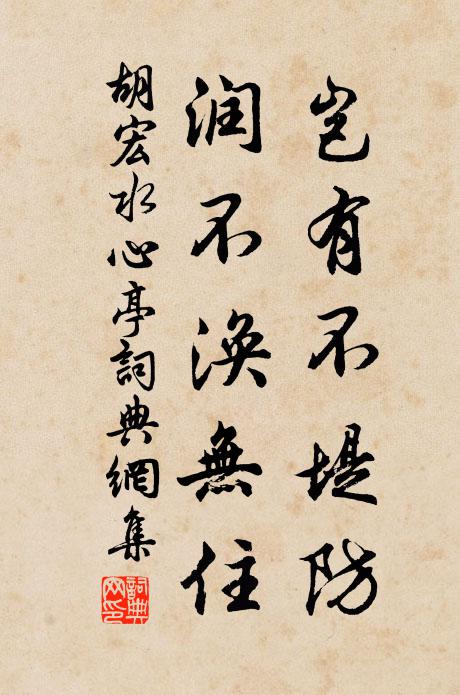 岂有不堤防
润不涣無住
胡宏水心亭詞典網集
詞典網印